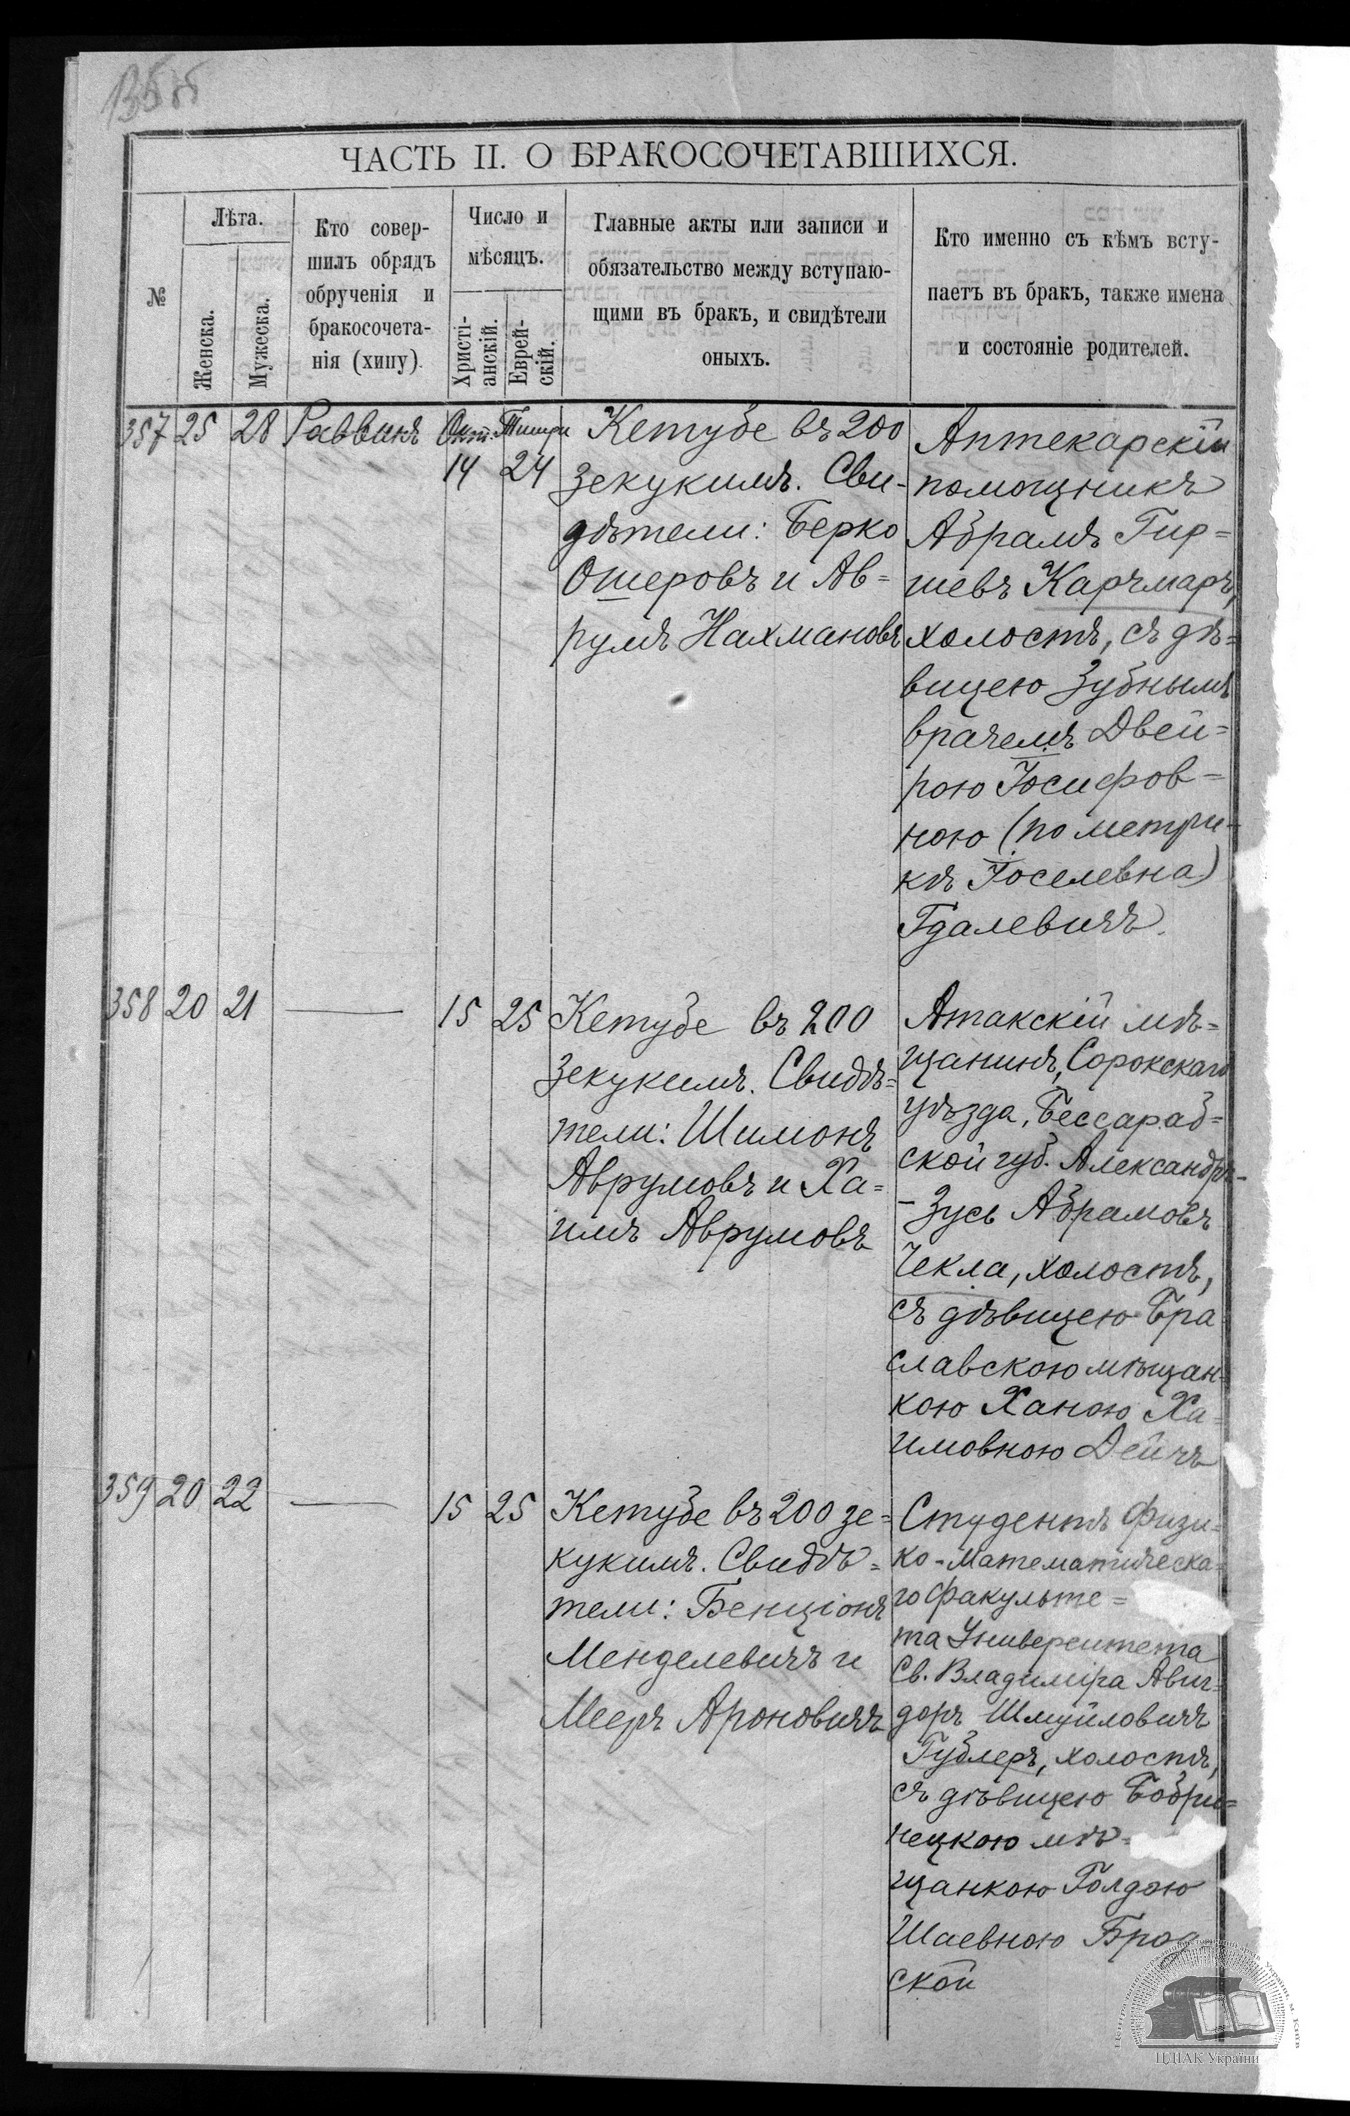 ЧАСТЬ II. О БРАКОСОЧЕТАВШИХСЯ.
№
Лѣта.
Женска.
Мужеска.
Кто совер-
шилъ обрядъ
обрученія и
бракосочета-
нія (хипу).
Число и
мѣсяцъ.
Христі-
анскій.
Еврей-
скій.
Главные акты или записи и
обязательство между вступаю-
щими въ бракъ, и свидѣтели
оныхъ.
Кто именно съ кѣмъ всту-
паетъ въ бракъ, также имена
и состояніе родителей.
357 25 28 Раввинъ Окт. Тишри
14 24
Кетубе въ 200
зекукимъ. Сви-
дѣтели: Берко
Ошеровъ и Ав=
румъ Нахмановъ
Аптекарскій
помощникъ
Абрамъ Гир=
шевъ Карчмаръ,
холостъ, съ дѣ=
вицею Зубнымъ
врачемъ Двей=
рою Іосифов=
ною (по метри-
кѣ Іоселевна)
Гдалевичъ.
358 20 21 15 25
Кетубе въ 200
зекукимъ. Свидѣ=
тели: Шимонъ
Аврумовъ и Ха=
имъ Аврумовъ
Атакскій мѣ=
щанинъ, Сорокскаго
уѣзда, Бессараб=
ской губ. Александръ-
-Зусь Абрамовъ
Чекла, холостъ,
съ дѣвицею Бра
славскою мѣщан-
кою Ханою Ха-
имовною Дейчъ
359 20 22 15 25
Кетубе въ 200 зе=
кукимъ. Свидѣ=
тели: Бенціонъ
Менделевичъ и
Мееръ Ароновичъ
Студентъ Физи-
ко-Математическа-
го факульте=
та Университета
Св. Владиміра Авиг-
доръ Шмуйловичъ
Гублеръ, холостъ,
съ дѣвицею Бобри=
нецкою мѣ-
щанкою Голдою
Шаевною Брод
ской
ЦДІАК України